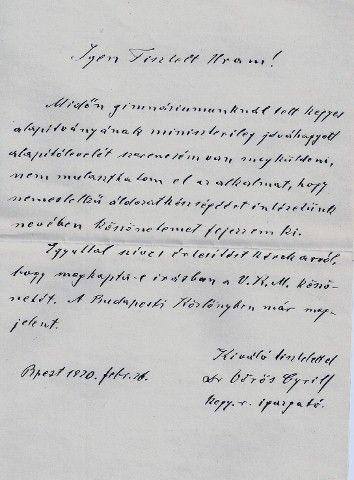 Igen Tisztelt Uram!
Midőn gimnáziumunknál tett kegyes
alapítványának miniszterileg jóváhagyott
alapítólevelét szerencsém van megküldeni,
nem mulaszthatom el az alkalmat, hogy
nemeslelkű áldozatkészségéért intézetünk
nevében köszönetemet fejezzem ki.
Egyúttal szíves értesítést kérek arról,
hogy megkapta-e írásban a V.K.M. köszö-
netét. A Budapesti Közlönyben már meg-
jelent.
Kiváló tisztelettel
Bpest 1920. febr. 26.
Dr Vörös Cyrill
kegy. r. igazgató.